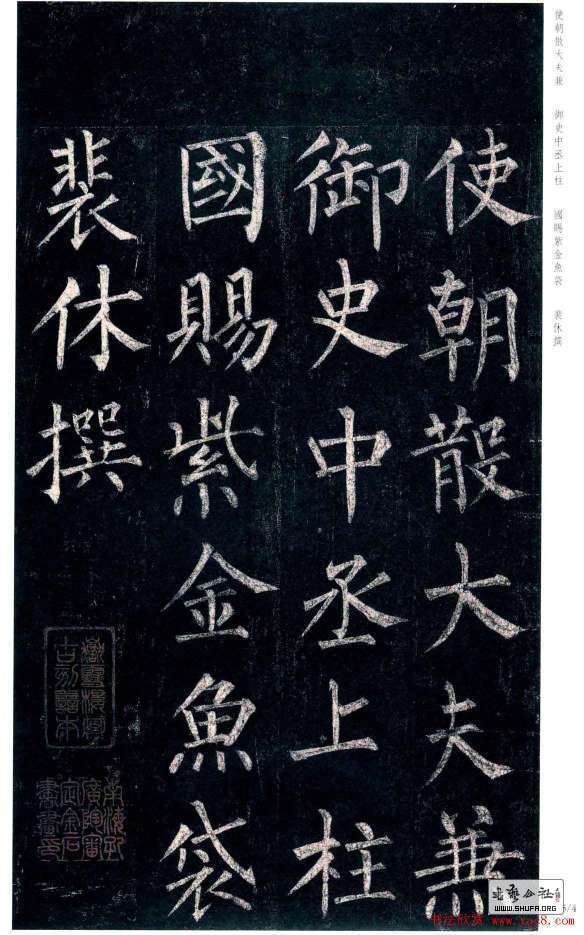 使朝散大夫兼
御史中丞上柱
國賜紫金魚袋
裴休撰
使朝散大夫兼 御史中丞上柱 國賜紫金魚袋 裴休撰
www.SHUFA.ORG
5/4
书法欣赏 www.yac8.com